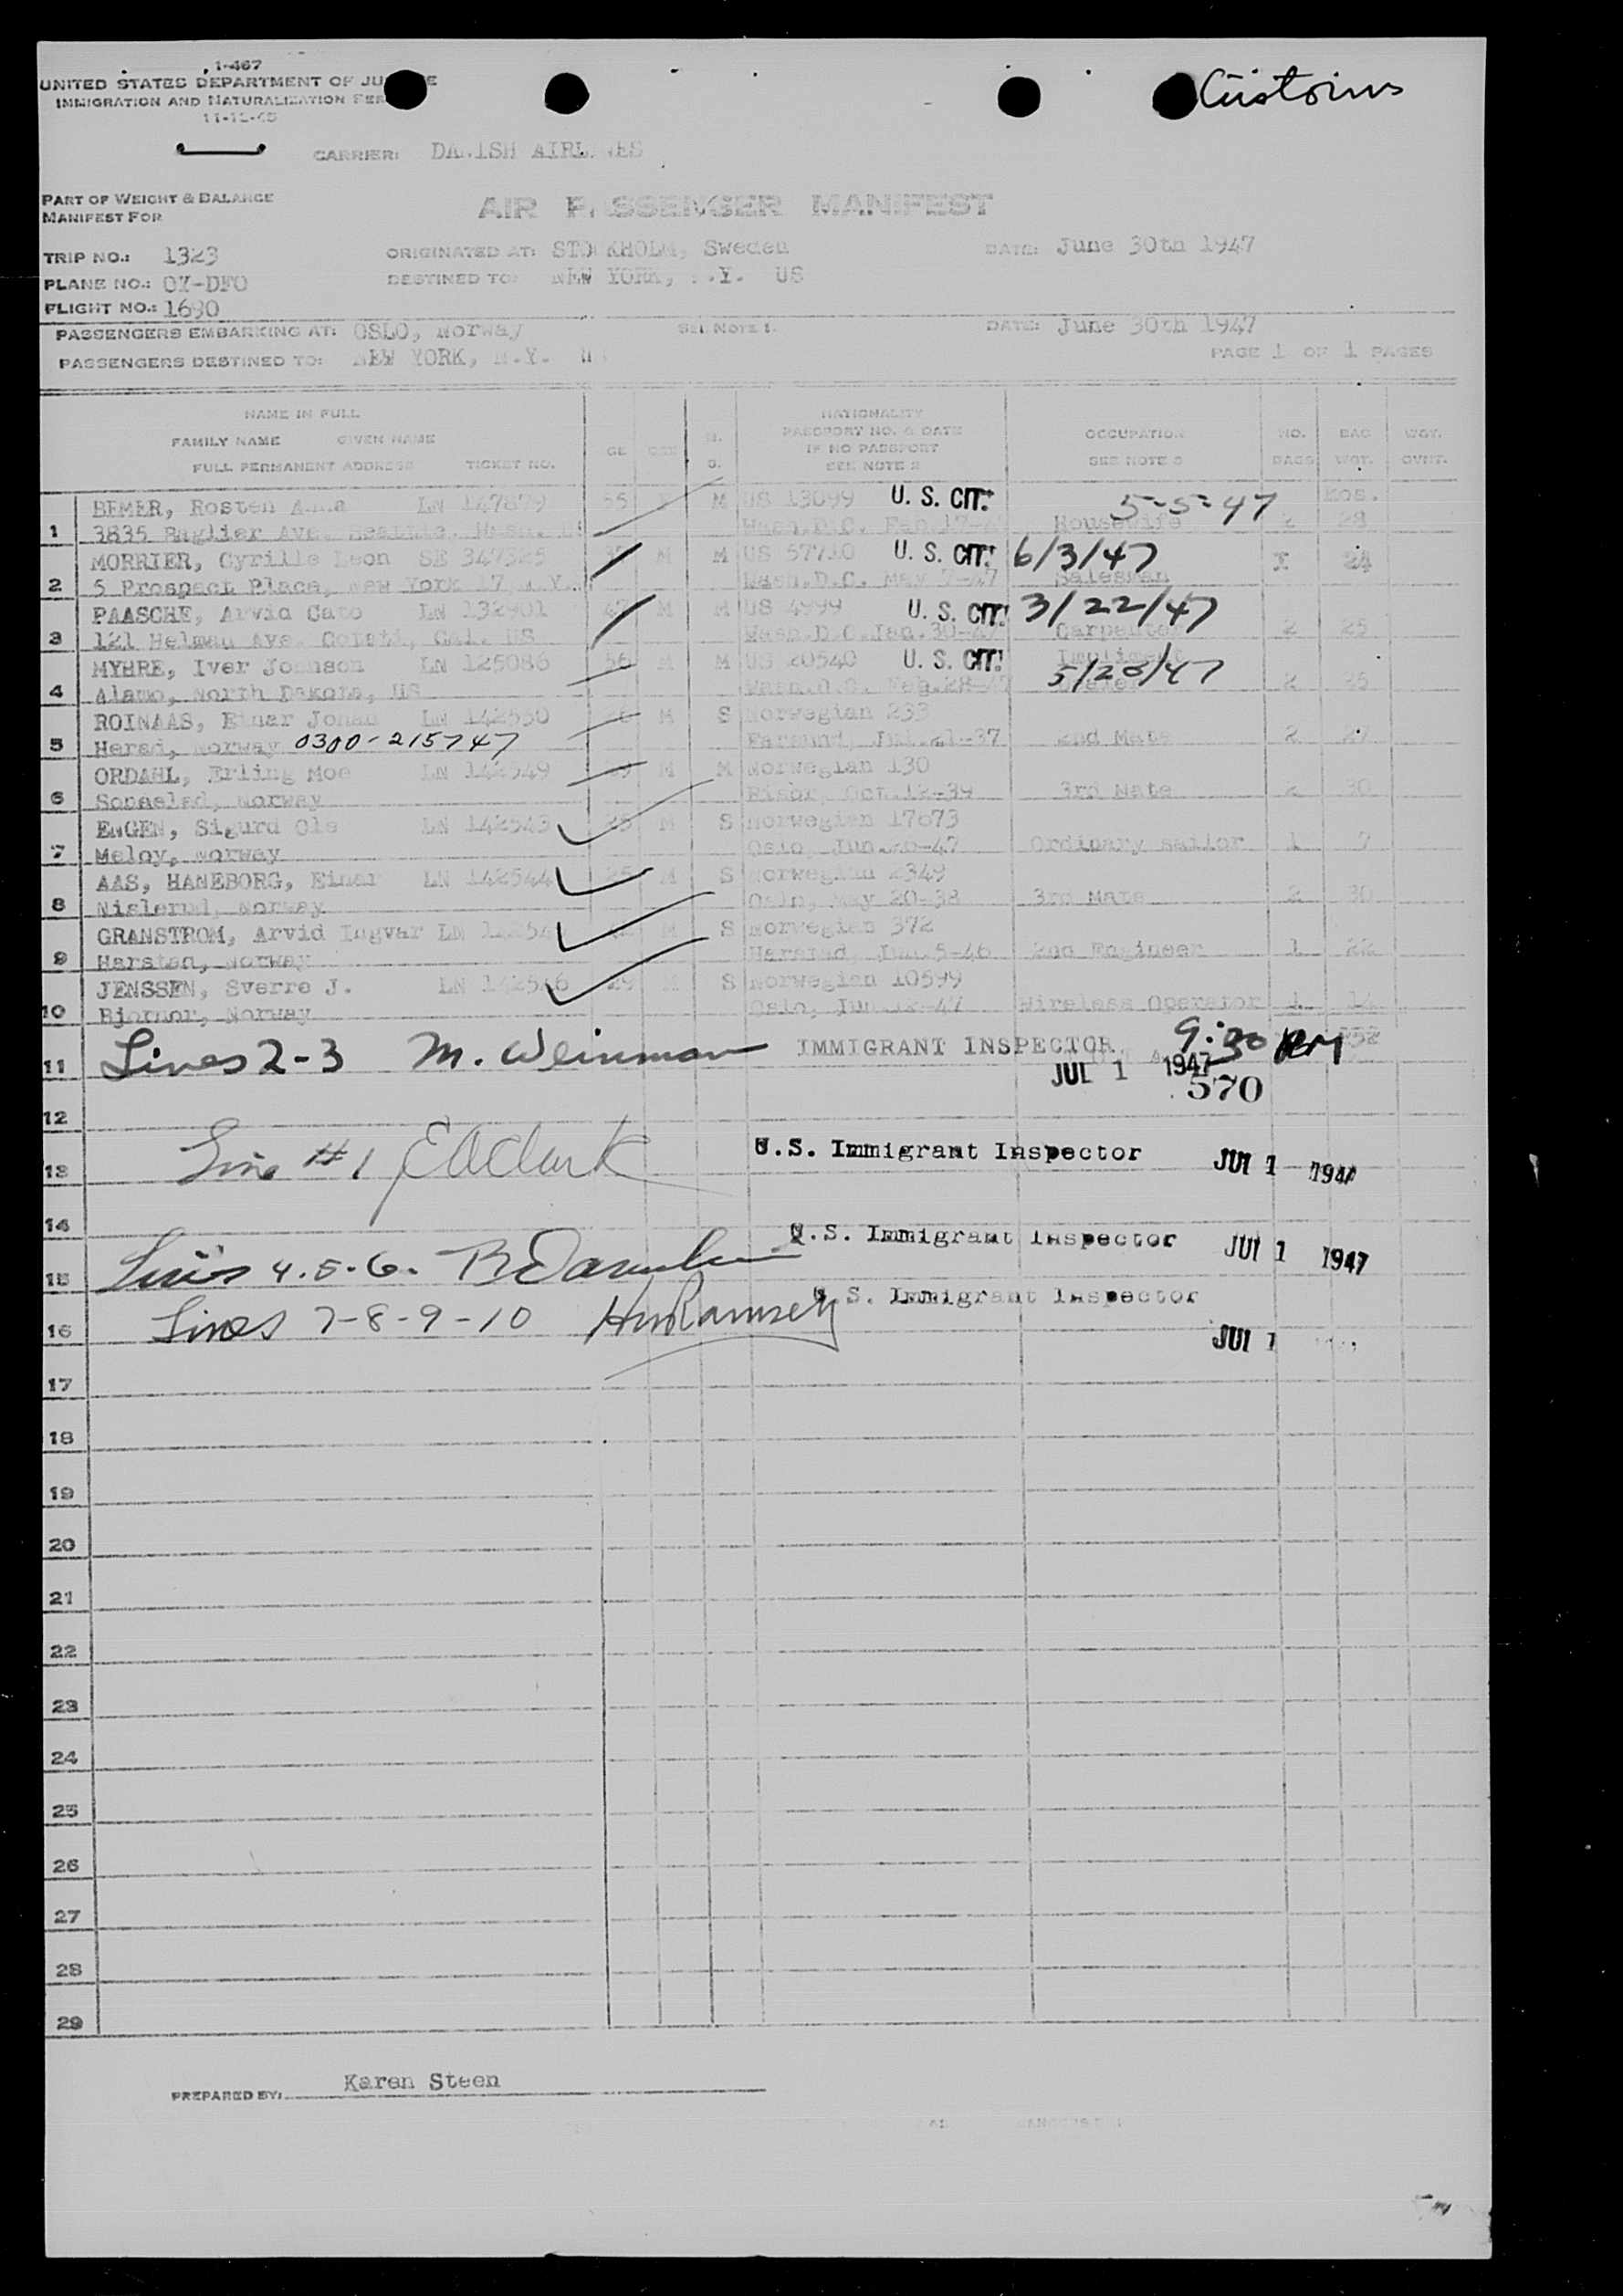 1-467
UNITED STATES DEPARTMENT OF JU E
IMMIGRATION AND NATURALIZATION SER
Customs
CARRIER: DANISH AIRLINES
PART OF WEIGHT & BALANCE
MANIFEST FOR
AIR PASSENGER MANIFEST
TRIP NO.: 1323 ORIGINATED AT: STOCKHOLM, Sweden DATE: June 30th 1947
PLANE NO.: OY-DFO DESTINED TO: NEW YORK, N.Y. US
FLIGHT NO.: 1690
PASSENGERS EMBARKING AT: OSLO, Norway SEE NOTE 1 DATE: June 30th 1947
PASSENGERS DESTINED TO: NEW YORK, N.Y. PAGE 1 OF 1 PAGES
NAME IN FULL NATIONALITY
FAMILY NAME GIVEN NAME PASSPORT NO. & DATE OCCUPATION NO. BAG WGT.
IF NO PASSPORT
FULL PERMANENT ADDRESS TICKET NO. SEE NOTE 2 SEE NOTE 3 BAGS WGT. OVWT.
BEMER, Rosten LN 147879 55 M US 13099 U. S. CIT. 5-5-47 KOS.
1 3835 Ave. Wash.D.C. Feb.17 Housewife 2 28
MORRIER, Cyrille Leon SE 347325 M M US U. S. CIT. 6/3/47
2 5 Prospect Place, New York 17 N.Y. Wash.D.C. May 7-47 Salesman 24
PAASCHE, Arvid Cato LN 132901 47 M M US 4999 U. S. CIT. 3/22/47
3 121 Helman Ave. Cal. US Wash.D.C. Jan.30-47 Carpenter 2 25
MYHRE, Iver Johnson LN 125086 56 M M US 20540 U. S. CIT.
4 Alamo, North Dakota, US Wash.D.C. Feb.28-47 5/28/47 2 25
ROINAAS, Einar Johan LN 142550 M S Norwegian 233
5 Herad, Norway 0300-215747 Farsund, Jul.21-37 2nd Mate 2 27
ORDAHL, Erling Moe LN 142549 M M Norwegian 130
6 Norway Oct.12-39 3rd Mate 2 30
ENGEN, Sigurd Ole LN 142543 25 M S Norwegian 17673
7 Meloy, Norway Oslo, Jun. -47 Ordinary sailor 1 7
AAS, HANEBORG, Einar LN 142544 25 M S Norwegian 2349
8 Norway Oslo, May 20-38 3rd Mate 2 30
GRANSTROM, Arvid Ingvar LN M S Norwegian 372
9 Harstan, Norway Harstad, Jun.5-46 2nd Engineer 1 22
JENSSEN, Sverre J. LN 142546 29 M S Norwegian 10599
10 Bjornor, Norway Oslo, Jun.12-47 Wireless Operator 1 14
11 Lines 2-3 M. Weinman IMMIGRANT INSPECTOR 9:30 PM
JUL 1 1947
570
12
13 Line #1 E A Clark U.S. Immigrant Inspector JUL 1 1947
14
U.S. Immigrant Inspector JUL 1 1947
15 Lines 4.5.6.
U.S. Immigrant Inspector
16 Lines 7-8-9-10 Ramsey JUL 1
17
18
19
20
21
22
23
24
25
26
27
28
29
PREPARED BY: Karen Steen